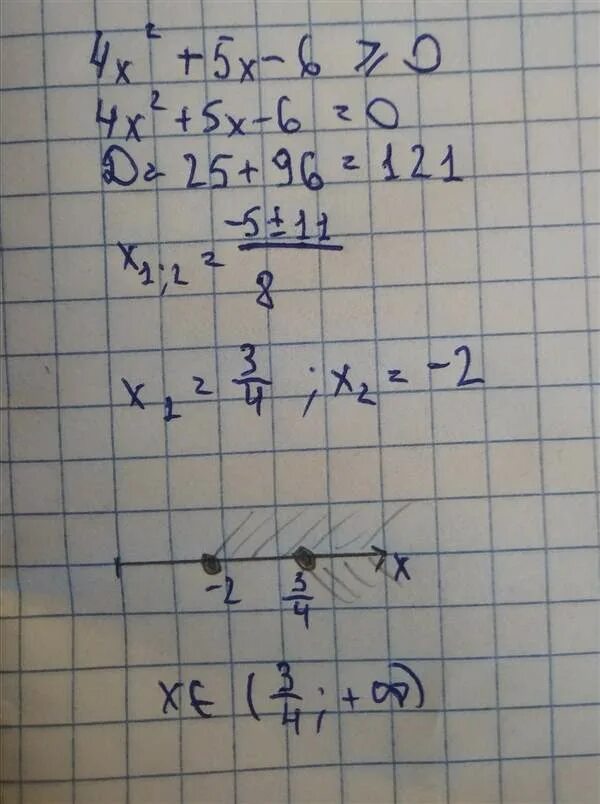 4x² + 5x - 6 ⩾ 0
4x² + 5x - 6 = 0
D = 25 + 96 = 121
x₁;₂ = (-5 ± 11)/8
x₁ = 3/4 ; x₂ = -2
-2 3/4 x
x ∈ (3/4; +∞)